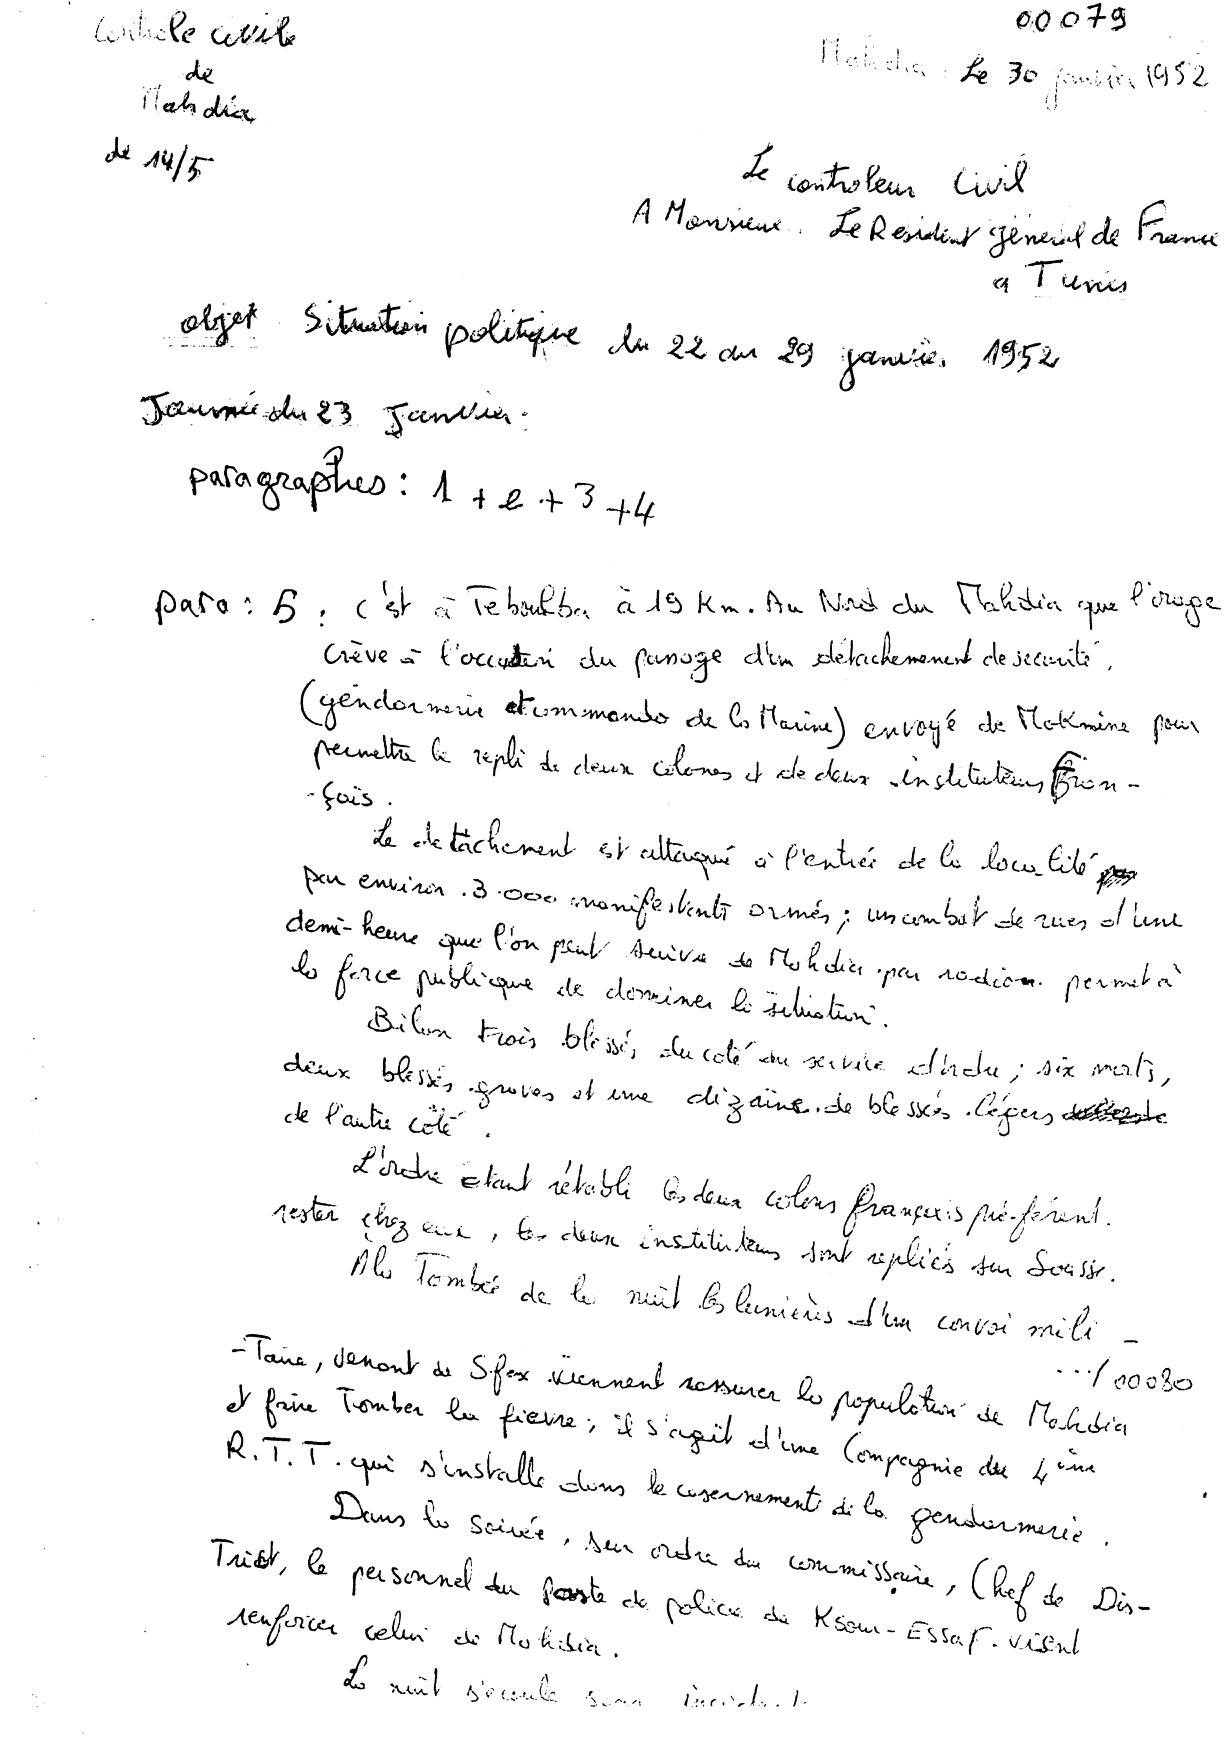 00079
Controle civile
de
Mahdia
de 14/5
Mahdia. Le 30 janvier 1952
Le controleur Civil
A Monsieur. Le Resident général de France
a Tunis
objet Situation politique du 22 au 29 janvier. 1952
Journée du 23 Janvier.
paragraphes : 1 + 2 + 3 + 4
para : 5 : c'est à Teboulba à 19 Km. Au Nord du Mahdia que l'orage
crève à l'occasion du passage d'un détachemement de securité,
(gendarmerie et commando de la Marine) envoyé de Mokmine pour
permettre le repli de deux colones et de deux instituteurs Fran-
-çais.
Le detachement est attaqué à l'entrée de la localité
par environ 3.000 manifestants armés ; un combat de rues d'une
demi-heure que l'on peut suivre de Mahdia par radion permet à
la force publique de dominer la situation.
Bilan trois blessés du coté du service d'ordre ; six morts,
deux blessés graves et une dizaine de blessés légers
de l'autre côté.
L'ordre étant rétabli les deux colons français préférent
rester chez eux, les deux instituteurs sont repliés sur Sousse.
A la Tombée de la nuit les lumières d'un convoi mili-
.../00080
-Taire, venant de Sfax viennent rassurer la population de Mahdia
et faire Tomber la fievre ; il s'agit d'une Compagnie du 4ème
R.T.T. qui s'installe dans le casernement de la gendarmerie.
Dans la Soirée, sur ordre du commissaire, Chef de Dis-
Trict, le personnel du poste de police de Ksour-Essaf. vient
renforcer celui de Mahdia.
La nuit s'ecoule sans incident.